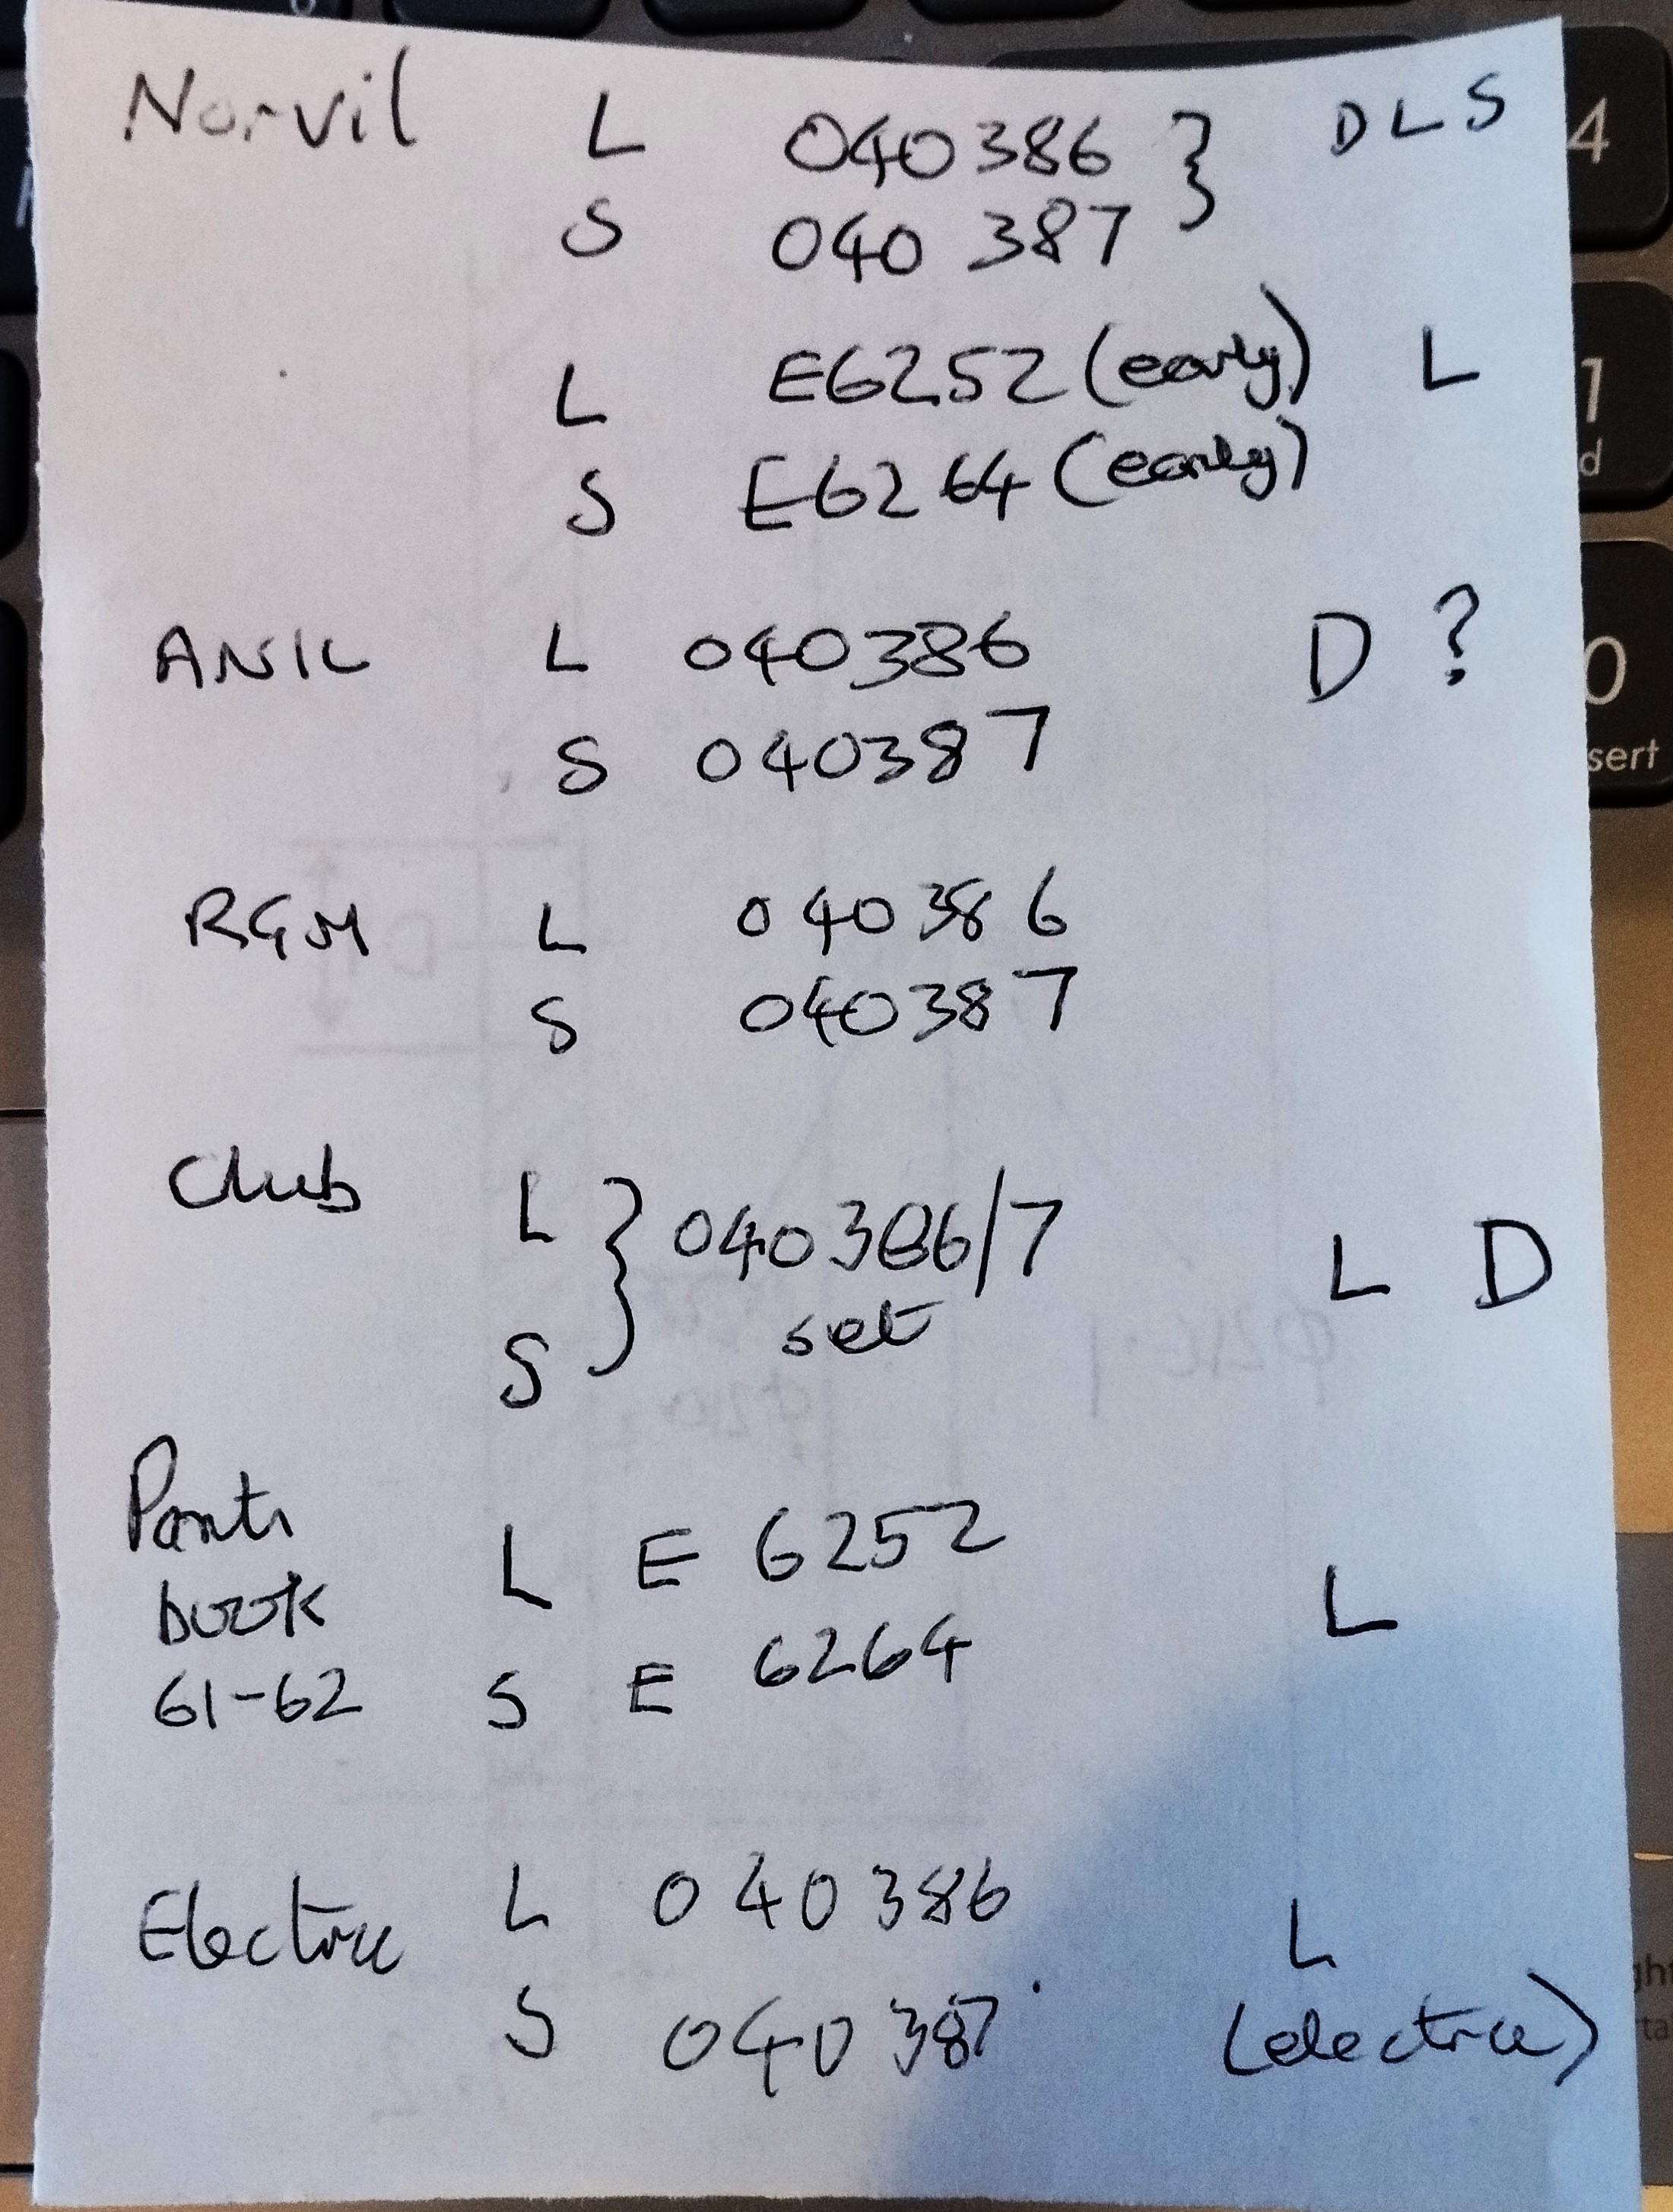 Norvil L 040386 } DLS
S 040 387
L E6252 (early) L
S E6264 (early)
ANIL L 040386 D ?
S 040387
RGM L 040386
S 040387
Club L } 040386/7 L D
set
S
Parts
book L E 6252 L
61-62 S E 6264
Electric L 040386 L
S 040387 (electric)
4
1
d
0
sert